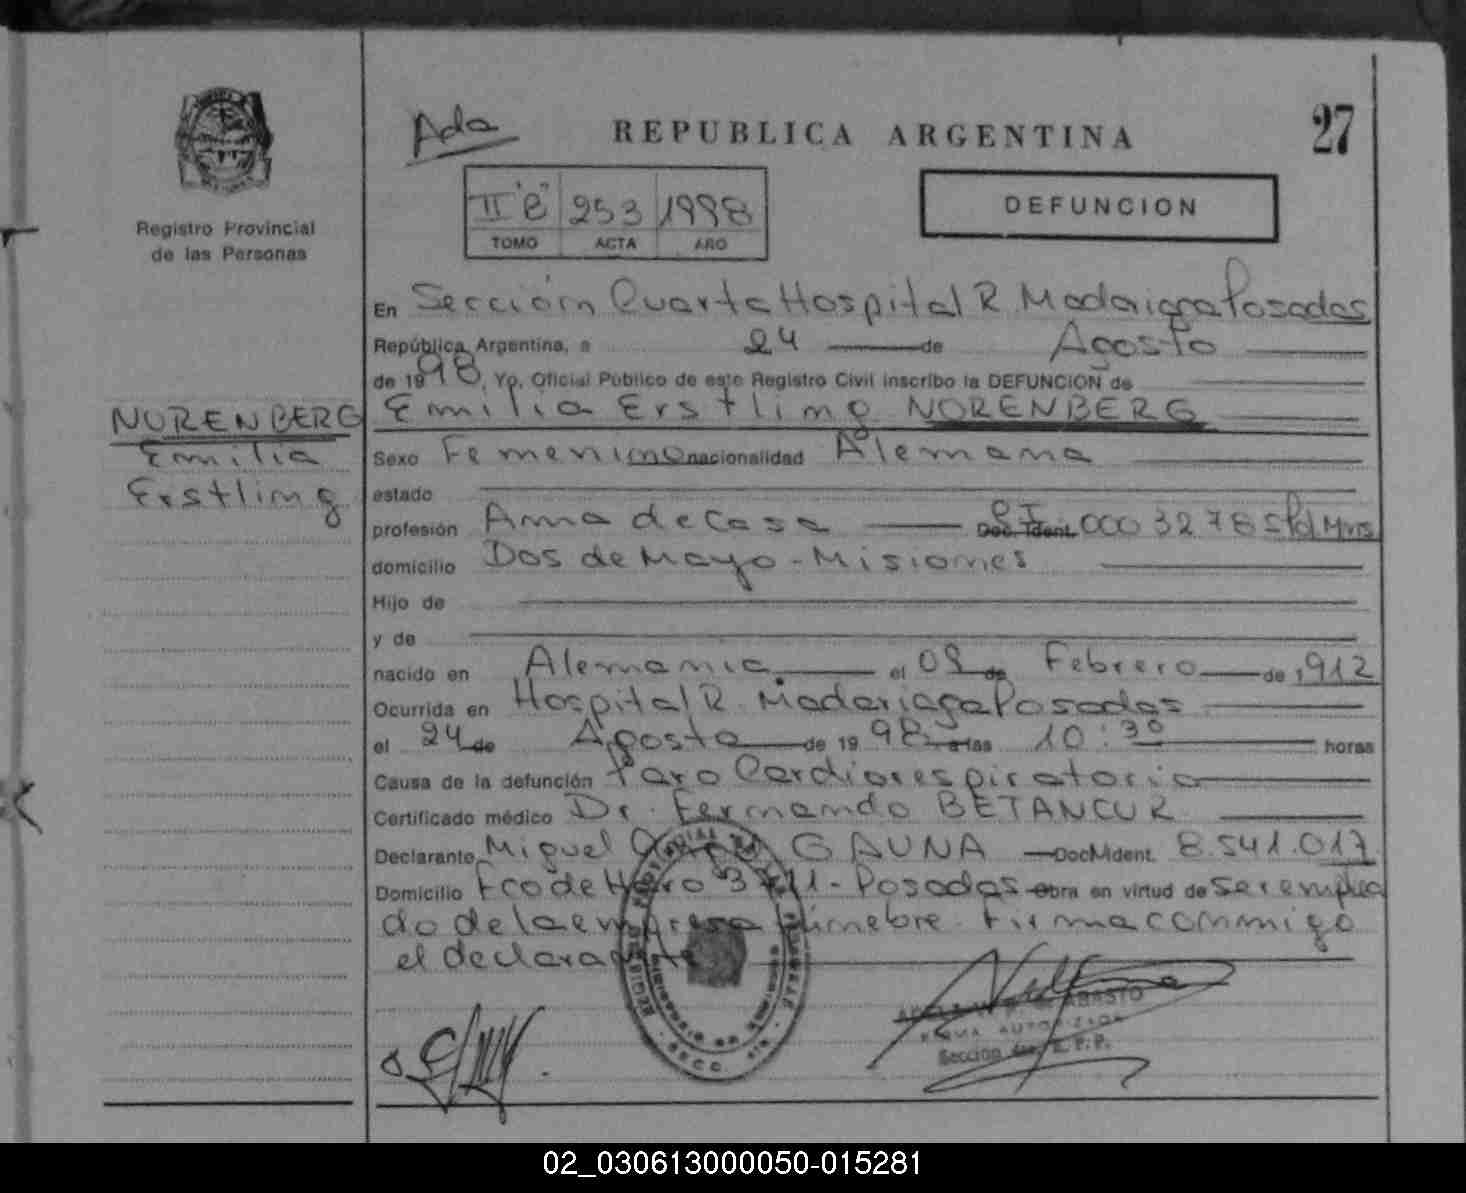 Ada
REPUBLICA ARGENTINA
27
Registro Provincial
de las Personas
II "B" 253 1998
TOMO ACTA AÑO
DEFUNCION
En Sección Cuarta Hospital R. Madariaga Posadas
República Argentina, a 24 de Agosto
de 1998, Yo, Oficial Público de este Registro Civil inscribo la DEFUNCION de
NURENBERG
Emilia
Erstling
Emilia Erstling NORENBERG
Sexo Femenino nacionalidad Alemana
estado
profesión Ama de Casa CI Doc. Ident. 0003278 Pol Mnes
domicilio Dos de Mayo - Misiones
Hijo de
y de
nacido en Alemania el 09 de Febrero de 1912
Ocurrida en Hospital R. Madariaga Posadas
el 24 de Agosto de 1998 a las 10:30 horas
Causa de la defunción Paro Cardiorespiratorio
Certificado médico Dr. Fernando BETANCUR
Declarante Miguel GAUNA Doc. Ident. 8.541.017
Domicilio Fco de Haro - Posadas obra en virtud de ser emplea
do de la empresa fúnebre. Firma conmigo
el declarante
FIRMA AUTORIZADA
Sección 4ta. R.P.P.
02_030613000050-015281